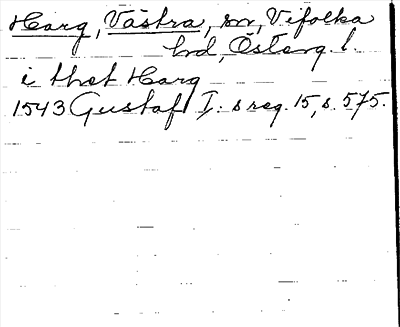 Harg, Västra, sn, Vifolka
hd, Österg. l.
i thet Harg
1543 Gustaf I: s reg. 15, s. 575.